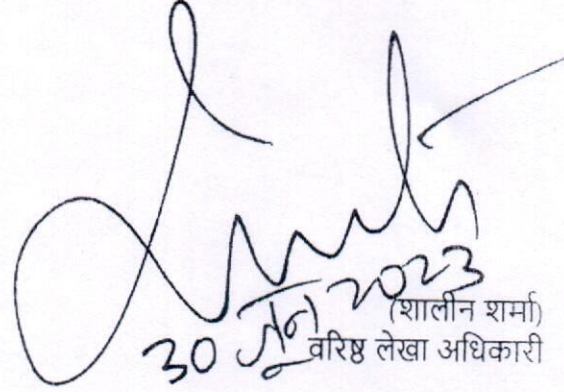 30 जून 2023
(शालीन शर्मा)
वरिष्ठ लेखा अधिकारी